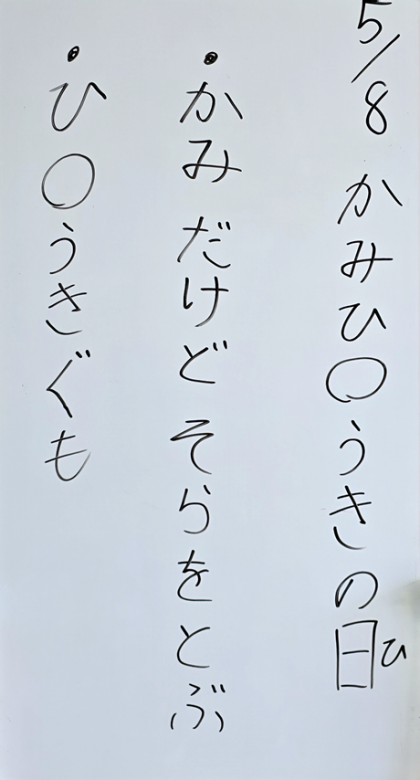 5/8 かみひ○うきの日
ひ
・かみだけど そらをとぶ
・ひ○うきぐも